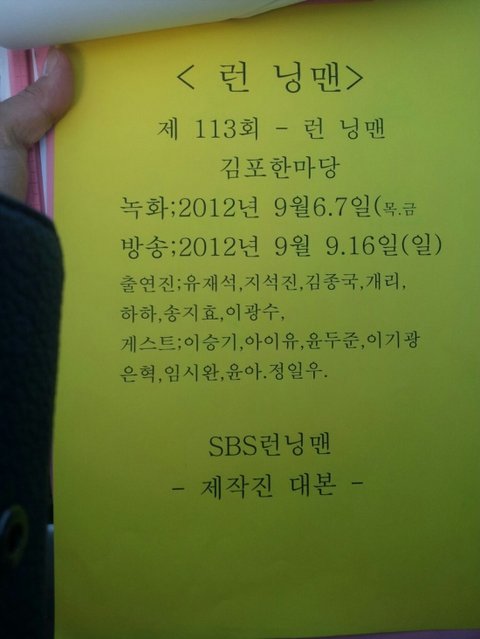 < 런 닝맨>
제 113회 - 런 닝맨
김포한마당
녹화;2012년 9월6.7일(목.금
방송;2012년 9월 9.16일(일)
출연진;유재석,지석진,김종국,개리,
하하,송지효,이광수,
게스트;이승기,아이유,윤두준,이기광
은혁,임시완,윤아.정일우.
SBS런닝맨
- 제작진 대본 -